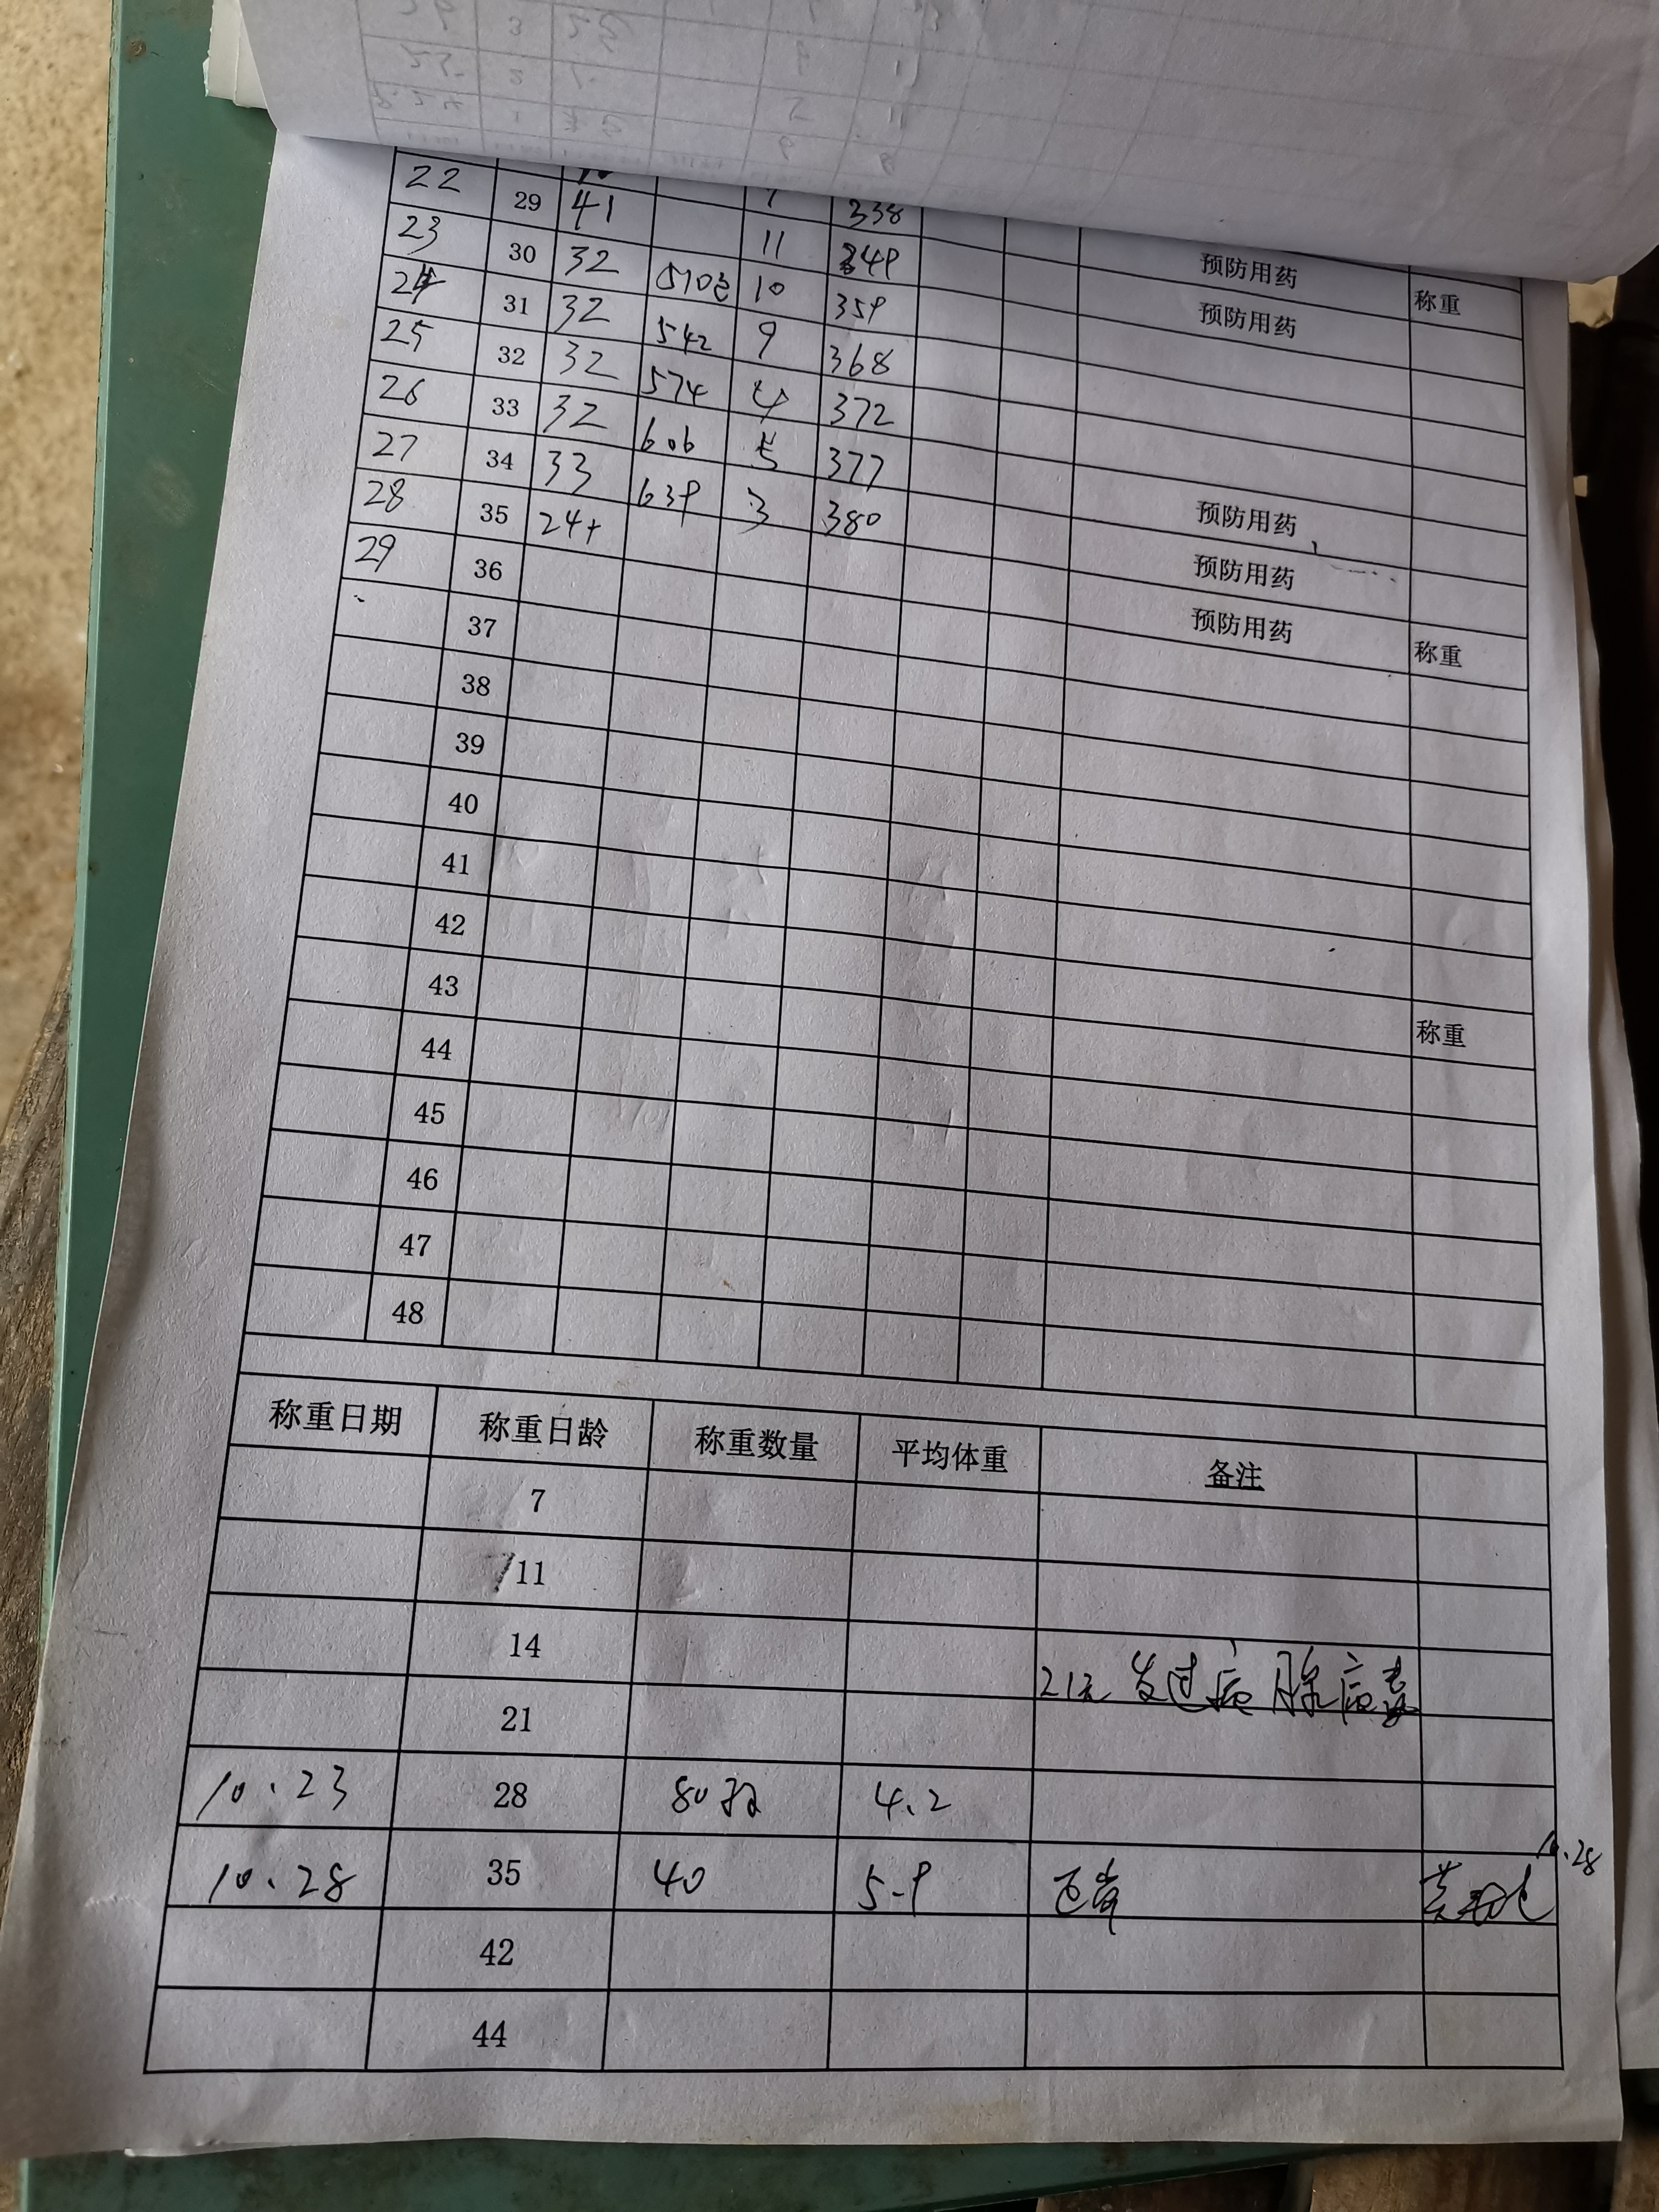 22 29 41 338
23 30 32 11 349 预防用药
24 31 32 510包 10 359 预防用药 称重
25 32 32 542 9 368
26 33 32 574 4 372
27 34 33 606 5 377 预防用药
28 35 24+ 639 3 380 预防用药
29 36 预防用药
37 称重
38
39
40
41
42
43
44 称重
45
46
47
48
称重日期 称重日龄 称重数量 平均体重 备注
7
11
14
21天 发过病 腺病毒
21
10.23 28 80只 4.2
10.28 35 40 5-9 正常 10.28
42
44